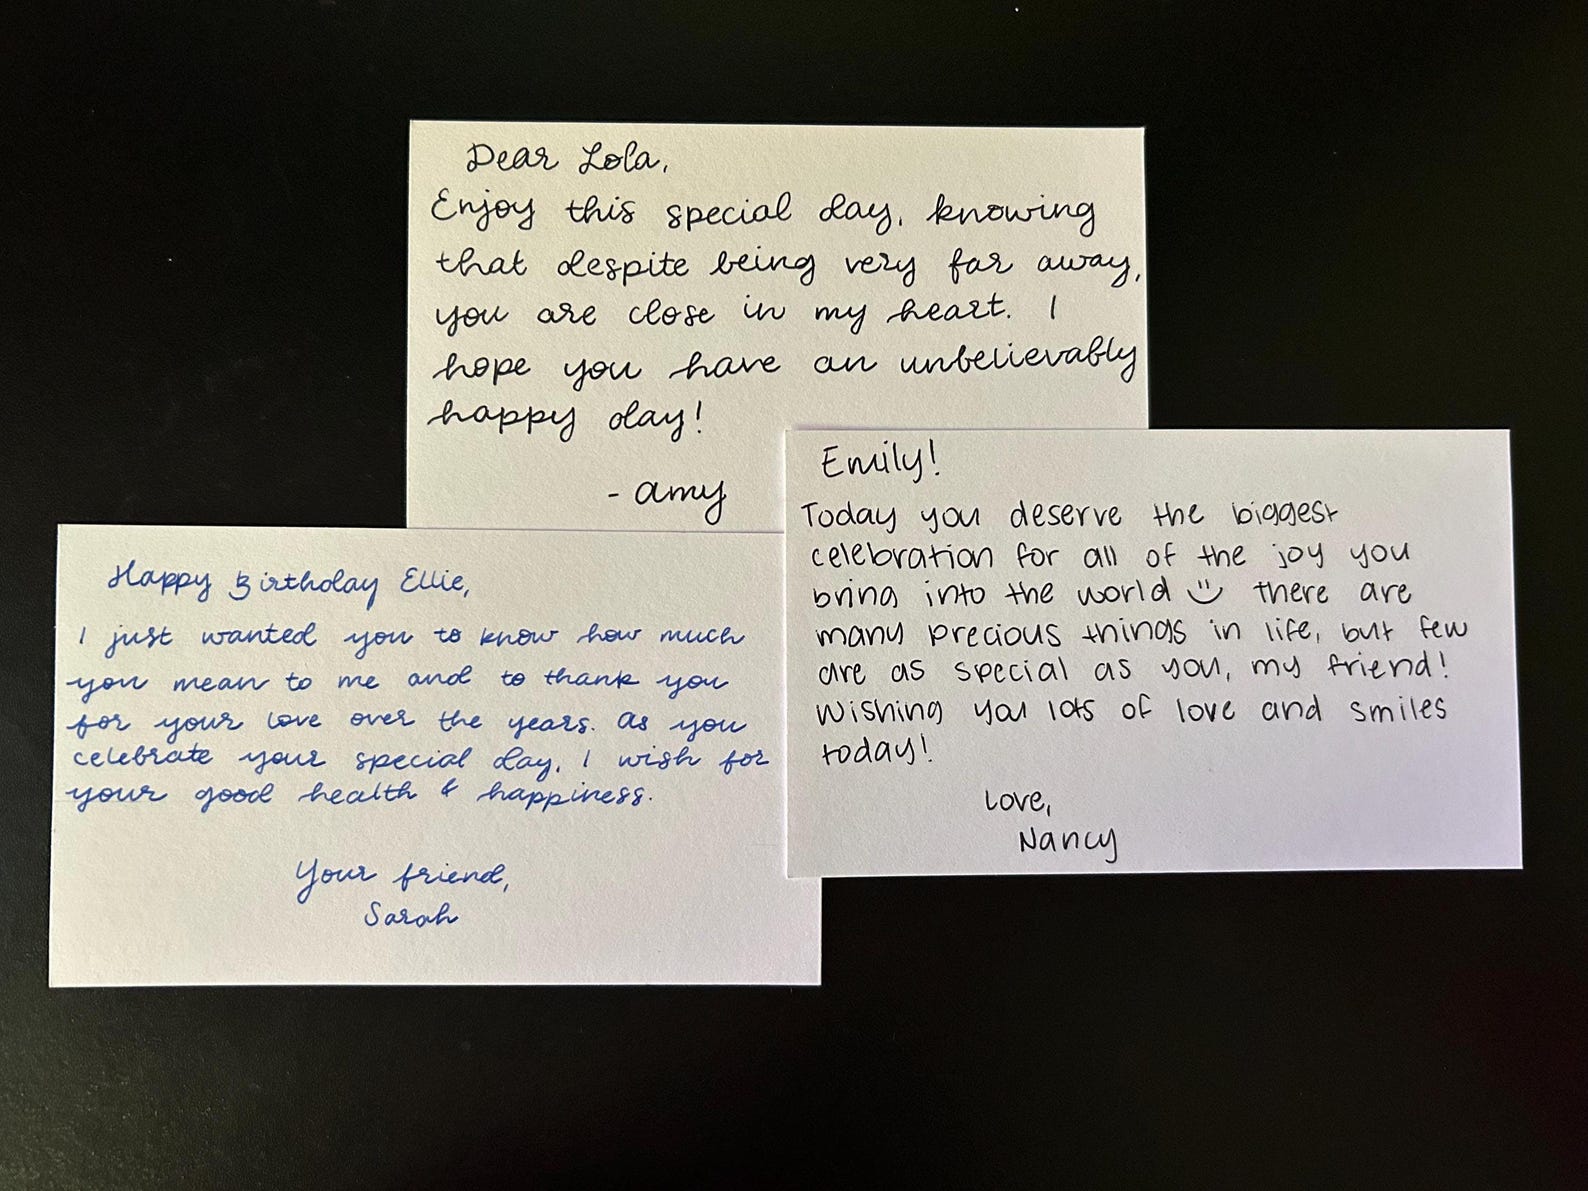 Dear Lola,
Enjoy this special day, knowing
that despite being very far away,
you are close in my heart. I
hope you have an unbelievably
happy day!
- amy
Emily!
Today you deserve the biggest
celebration for all of the joy you
bring into the world there are
many precious things in life, but few
are as special as you, my friend!
Wishing you lots of love and smiles
today!
Love,
Nancy
Happy Birthday Ellie,
I just wanted you to know how much
you mean to me and to thank you
for your love over the years. As you
celebrate your special day, I wish for
your good health & happiness.
Your friend,
Sarah